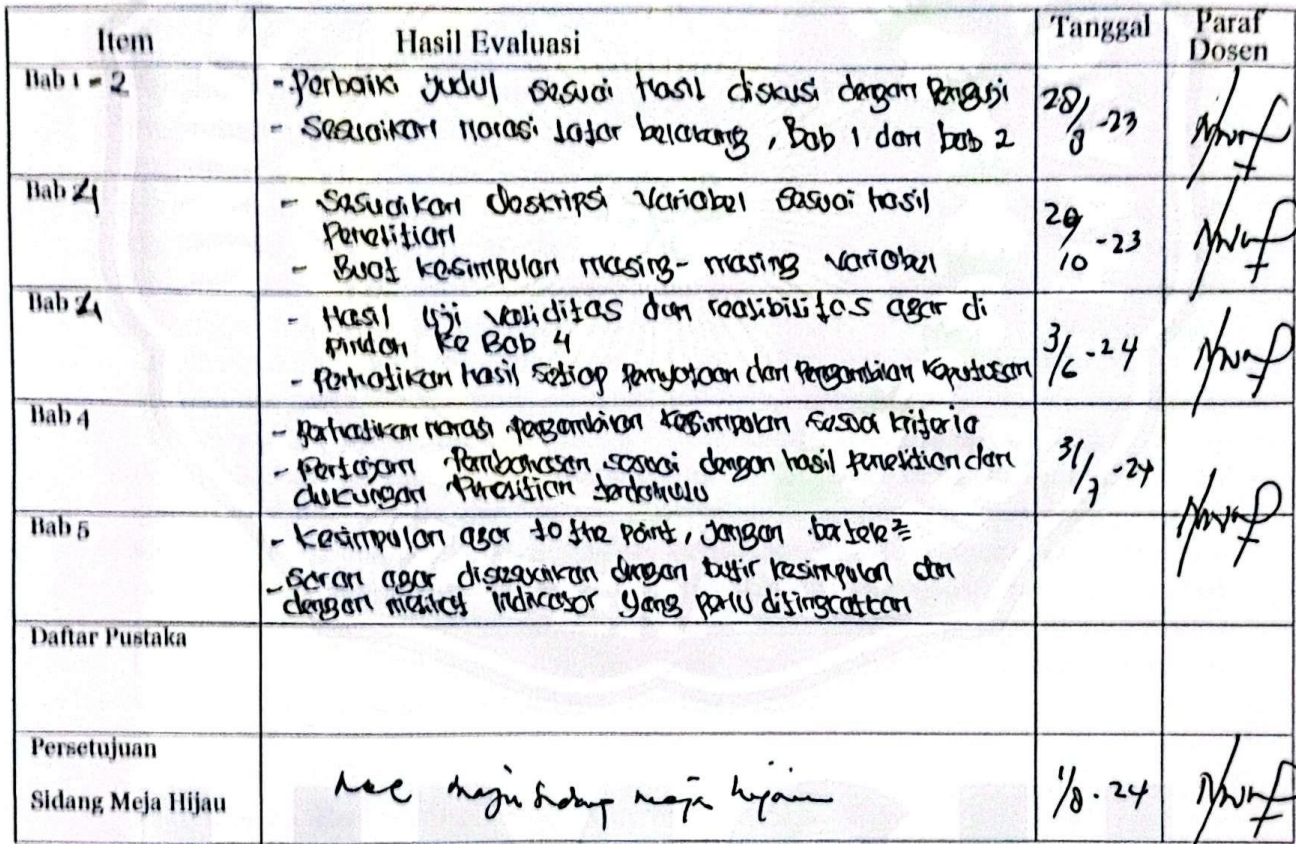 Item Hasil Evaluasi Tanggal Paraf Dosen
Bab 1 - 2
- Perbaiki judul sesuai hasil diskusi dengan Penguji
28/8-23
- Sesuaikan narasi latar belakang, Bab 1 dan bab 2
Bab 4
- Sesuaikan deskripsi variabel sesuai hasil
Penelitian
- Buat kesimpulan masing-masing variabel
/10-23
Bab 4
- Hasil uji validitas dan realibilitas agar di
pindah ke Bab 4
3/6-24
- Perhatikan hasil setiap Pernyataan dan Pengambilan Keputusan
Bab 4
- Perhatikan narasi pengambilan kesimpulan sesuai kriteria
- Pertajam Pembahasan sesuai dengan hasil Penelitian dan
31/7-24
dukungan Penelitian terdahulu
Bab 5
- Kesimpulan agar to the point, Jangan bertele²
- Saran agar disesuaikan dengan butir kesimpulan dan
dengan melihat indikator yang perlu ditingkatkan
Daftar Pustaka
Persetujuan
Sidang Meja Hijau
Acc maju sidang meja hijau
1/8-24